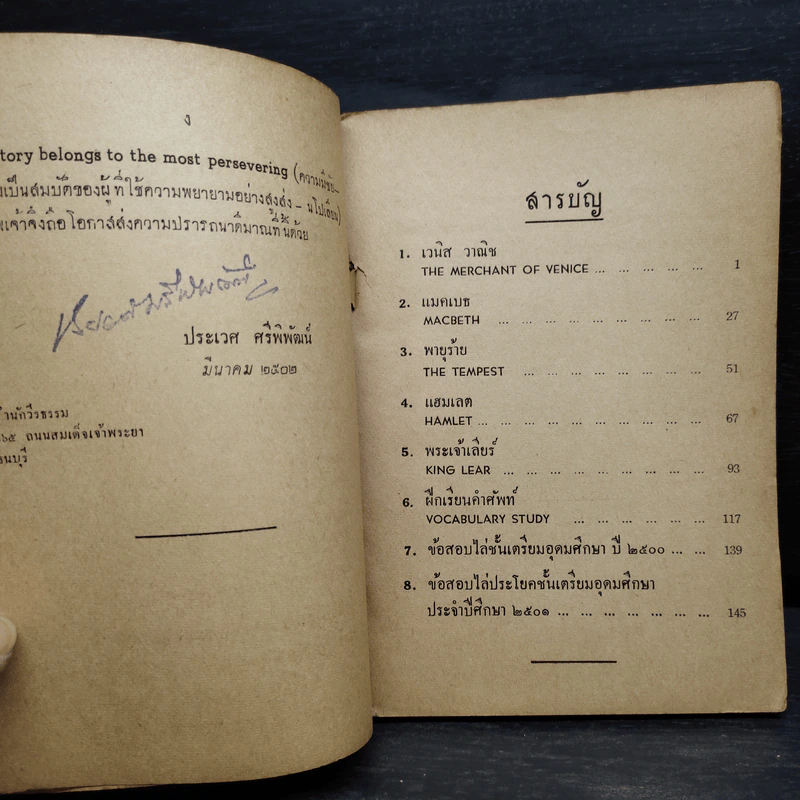 ง
tory belongs to the most persevering (ความมีชัย–
เป็นสมบัติของผู้ที่ใช้ความพยายามอย่างสูงส่ง – นโปเลียน)
เจ้าจึงถือโอกาสส่งความปรารถนาดีมาณที่นี้ด้วย
ประเวศ ศรีพิพัฒน์
มีนาคม ๒๕๐๒
สำนักวีรธรรม
๖๕ ถนนสมเด็จเจ้าพระยา
ธนบุรี
สารบัญ
1. เวนิส วาณิช
THE MERCHANT OF VENICE ... ... ... ... ... 1
2. แมคเบธ
MACBETH ... ... ... ... ... ... ... ... 27
3. พายุร้าย
THE TEMPEST ... ... ... ... ... ... ... 51
4. แฮมเลต
HAMLET ... ... ... ... ... ... ... ... ... 67
5. พระเจ้าเลียร์
KING LEAR ... ... ... ... ... ... ... ... 93
6. ฝึกเรียนคำศัพท์
VOCABULARY STUDY ... ... ... ... ... ... 117
7. ข้อสอบไล่ชั้นเตรียมอุดมศึกษา ปี ๒๕๐๐ ... ... 139
8. ข้อสอบไล่ประโยคชั้นเตรียมอุดมศึกษา
ประจำปีศึกษา ๒๕๐๑ ... ... ... ... ... ... ... 145